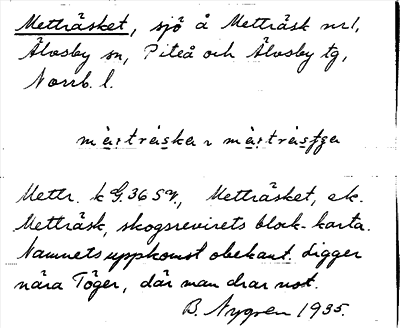 Metträsket, sjö å Metträsk nr 1,
Älvsby sn, Piteå och Älvsby tg,
Norrb. l.
Mettr. k G. 365 v., Metträsket, ek.
Metträsk, skogsrevirets block-karta.
Namnets uppkomst obekant. Ligger
nära Töger, där man drar not.
B. Nygren 1935.